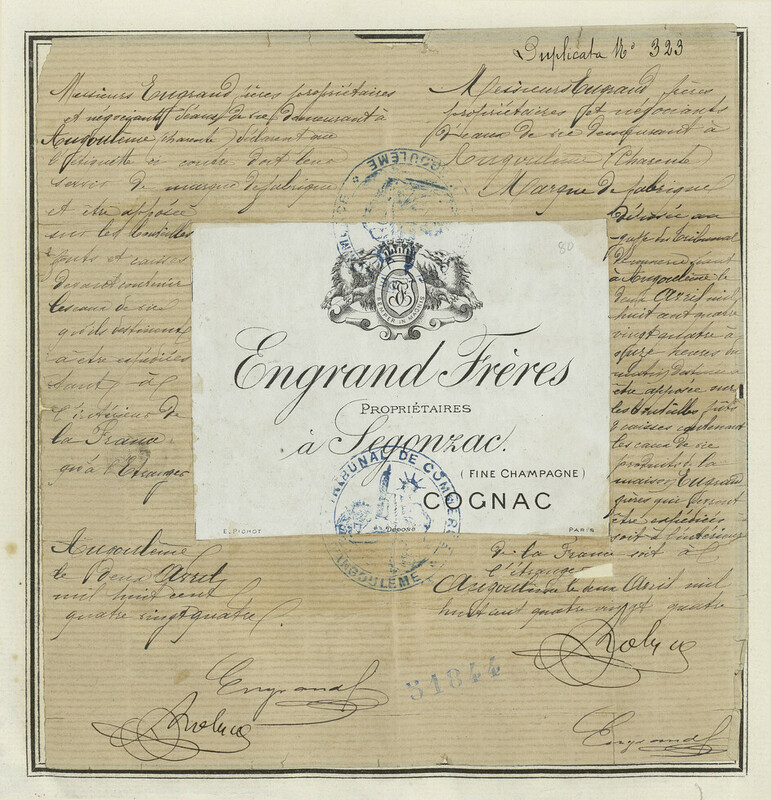 Duplicata Nº 323
Messieurs Engrand frères propriétaires
et négociants d'eaux de vie demeurant à
Angoulême (Charente) déclarent que
l'étiquette ci contre doit leur
servir de marque de fabrique
et être apposée
sur les bouteilles
futs et caisses
devant contenir
les eaux de vie
qu'ils destinent
à être expédiées
tant à
l'intérieur de
la France
qu'à l'Etranger
Angoulême
le Deux Avril
mil huit cent
quatre vingt quatre.
Engrand
Messieurs Engrand frères
propriétaires et négociants
d'eaux de vie demeurant à
Angoulême (Charente)
Marque de fabrique
déposée au
greffe du tribunal
de commerce séant
à Angoulême le
deux Avril mil
huit cent quatre
vingt quatre à
onze heures du
matin destinée à
être apposée sur
les bouteilles futs
& caisses contenant
les eaux de vie
produits de la
maison Engrand
frères qui devront
être expédiées
soit à l'intérieur
de la France soit à
l'étranger
Angoulême le deux Avril mil
huit cent quatre vingt quatre
Engrand
80
SEMPER IN MAGNIS
Engrand Frères
PROPRIÉTAIRES
à Segonzac.
(FINE CHAMPAGNE)
COGNAC
E. PICHOT
Déposé
PARIS
TRIBUNAL DE COMMERCE
ANGOULÊME
ANGOULÊME
51844